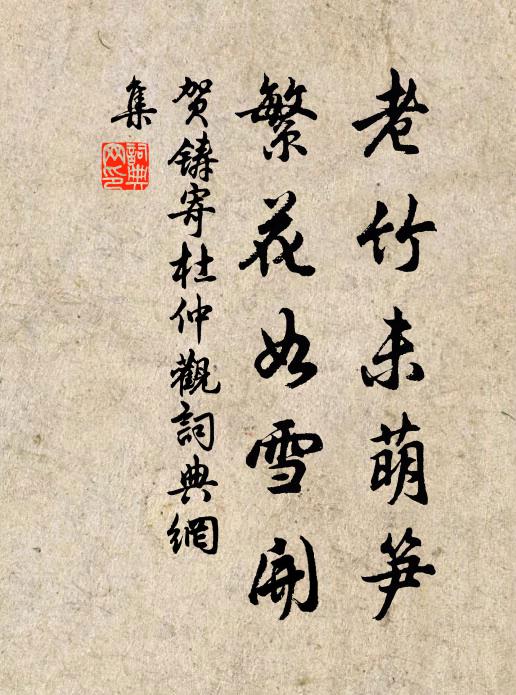 老竹未萌笋
繁花如雪開
贺鑄寄杜仲觀詞典網
集
詞典
网印